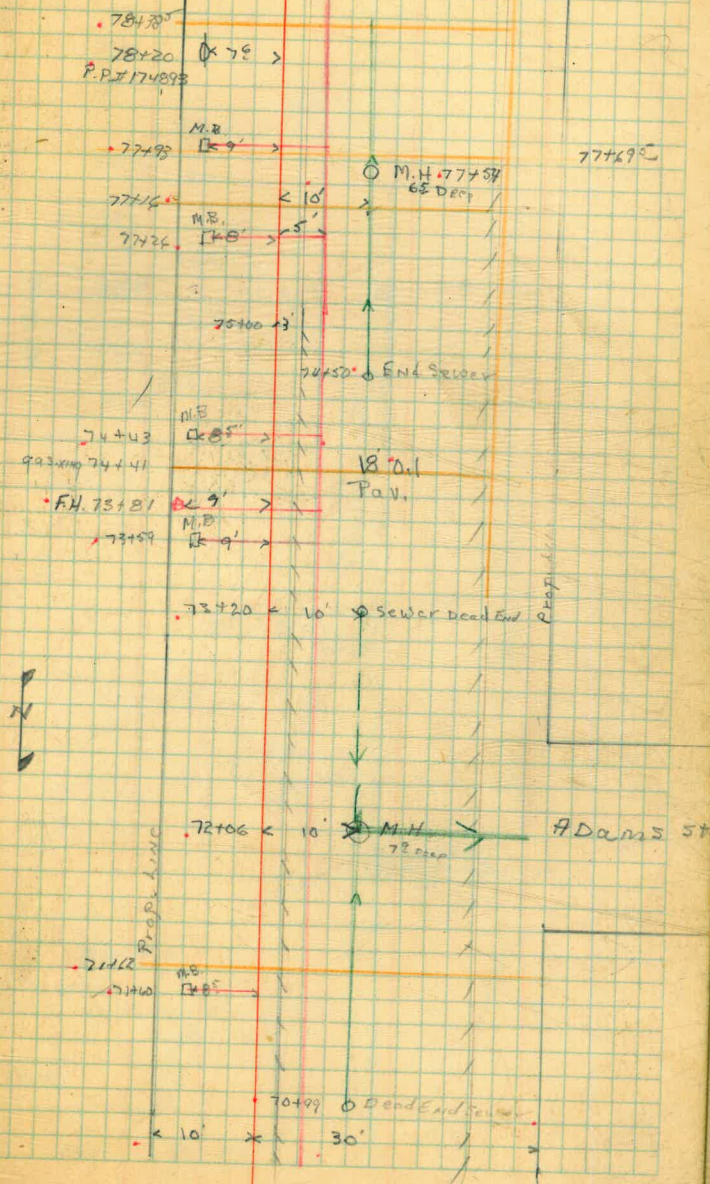 78+38⁵
78+20 7⁶
P.P.# 174893
M.B.
77+93 9'
77+69⁵
M.H. 77+54
6⁵ Deep
77+16 10'
M.B. 5'
8'
75+00 3'
74+50 End Sewer
M.B
74+43 8⁵'
gas xing 74+41
18' 0.1
Pav.
F.H. 73+81 9'
M.B
73+59 9'
73+20 10' Sewer Dead End
Prop. Line
N
72+06 10' M.H
7⁹ Deep
ADams St
Prop. LINE
71+62
M.B.
71+60 8⁵
70+99 Dead End Sewer
10' 30'